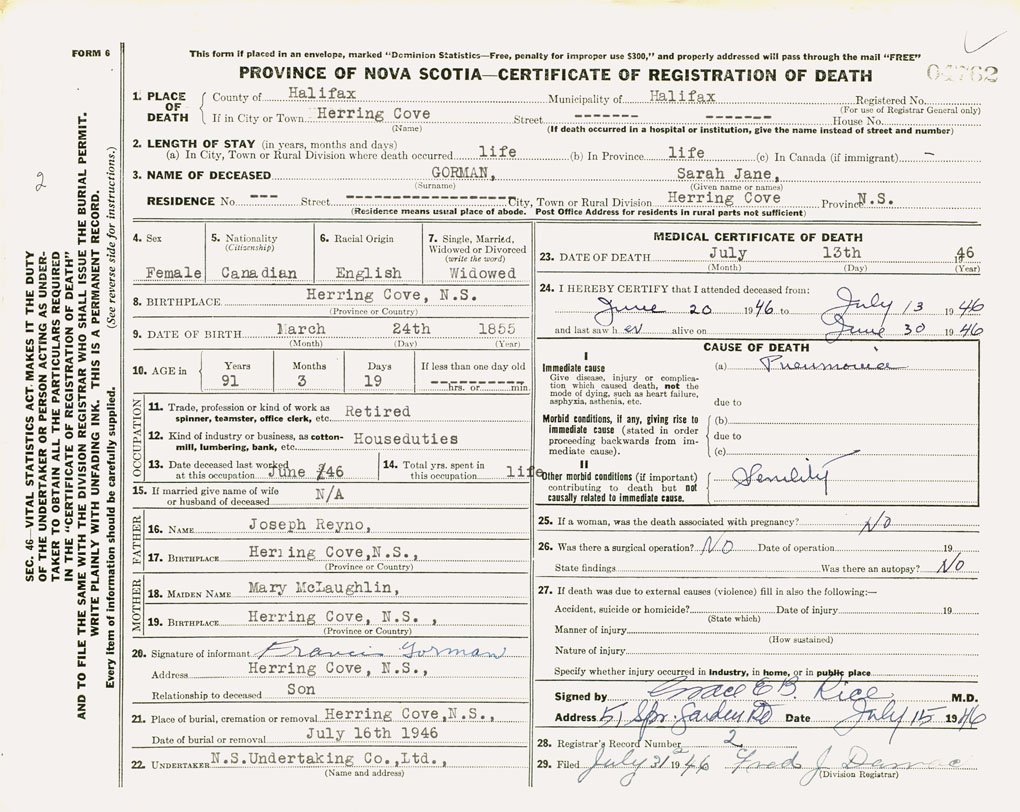 FORM 6
This form if placed in an envelope, marked "Dominion Statistics—Free, penalty for improper use $300," and properly addressed will pass through the mail "FREE"
PROVINCE OF NOVA SCOTIA—CERTIFICATE OF REGISTRATION OF DEATH
04762
1. PLACE OF DEATH
County of Halifax Municipality of Halifax Registered No.
(For use of Registrar General only)
If in City or Town Herring Cove Street ------- ------- House No.
(Name) (If death occurred in a hospital or institution, give the name instead of street and number)
2. LENGTH OF STAY (in years, months and days)
(a) In City, Town or Rural Division where death occurred life (b) In Province life (c) In Canada (if immigrant) —
3. NAME OF DECEASED GORMAN, Sarah Jane,
(Surname) (Given name or names)
RESIDENCE No. --- Street ------------------ City, Town or Rural Division Herring Cove Province N.S.
(Residence means usual place of abode. Post Office Address for residents in rural parts not sufficient)
4. Sex
Female
5. Nationality
(Citizenship)
Canadian
6. Racial Origin
English
7. Single, Married, Widowed or Divorced
(write the word)
Widowed
8. BIRTHPLACE Herring Cove, N.S.
(Province or Country)
9. DATE OF BIRTH March 24th 1855
(Month) (Day) (Year)
10. AGE in Years Months Days If less than one day old
91 3 19 ------------
hrs. or min.
OCCUPATION
11. Trade, profession or kind of work as spinner, teamster, office clerk, etc. Retired
12. Kind of industry or business, as cotton-mill, lumbering, bank, etc. Houseduties
13. Date deceased last worked at this occupation June /46
14. Total yrs. spent in this occupation life
15. If married give name of wife or husband of deceased N/A
FATHER
16. NAME Joseph Reyno,
17. BIRTHPLACE Herring Cove,N.S.,
(Province or Country)
MOTHER
18. MAIDEN NAME Mary McLaughlin,
19. BIRTHPLACE Herring Cove, N.S. ,
(Province or Country)
20. Signature of informant Francis Gorman
Address Herring Cove, N.S.,
Relationship to deceased Son
21. Place of burial, cremation or removal Herring Cove,N.S.,
Date of burial or removal July 16th 1946
22. UNDERTAKER N.S.Undertaking Co.,Ltd.,
(Name and address)
MEDICAL CERTIFICATE OF DEATH
23. DATE OF DEATH July 13th 1946
(Month) (Day) (Year)
24. I HEREBY CERTIFY that I attended deceased from:
June 20 1946 to July 13 1946
and last saw her alive on June 30 1946
CAUSE OF DEATH
I
Immediate cause
Give disease, injury or complication which caused death, not the mode of dying, such as heart failure, asphyxia, asthenia, etc.
(a) Pneumonia
due to
Morbid conditions, if any, giving rise to immediate cause (stated in order proceeding backwards from immediate cause).
(b)
due to
(c)
II
Other morbid conditions (if important) contributing to death but not causally related to immediate cause.
Senility
25. If a woman, was the death associated with pregnancy? No
26. Was there a surgical operation? No Date of operation 19
State findings Was there an autopsy? No
27. If death was due to external causes (violence) fill in also the following:—
Accident, suicide or homicide? Date of injury 19
(State which)
Manner of injury
(How sustained)
Nature of injury
Specify whether injury occurred in Industry, in home, or in public place
Signed by Grace E B. Rice M.D.
Address 51 Spr. Garden Rd Date July 15 1946
28. Registrar's Record Number 2
29. Filed July 31 1946 Fred J
(Division Registrar)
2
SEC. 46—VITAL STATISTICS ACT MAKES IT THE DUTY
OF THE UNDERTAKER OR PERSON ACTING AS UNDER-
TAKER TO OBTAIN ALL THE PARTICULARS REQUIRED
IN THE "CERTIFICATE OF REGISTRATION OF DEATH"
AND TO FILE THE SAME WITH THE DIVISION REGISTRAR WHO SHALL ISSUE THE BURIAL PERMIT.
WRITE PLAINLY WITH UNFADING INK. THIS IS A PERMANENT RECORD.
Every item of information should be carefully supplied. (See reverse side for instructions.)